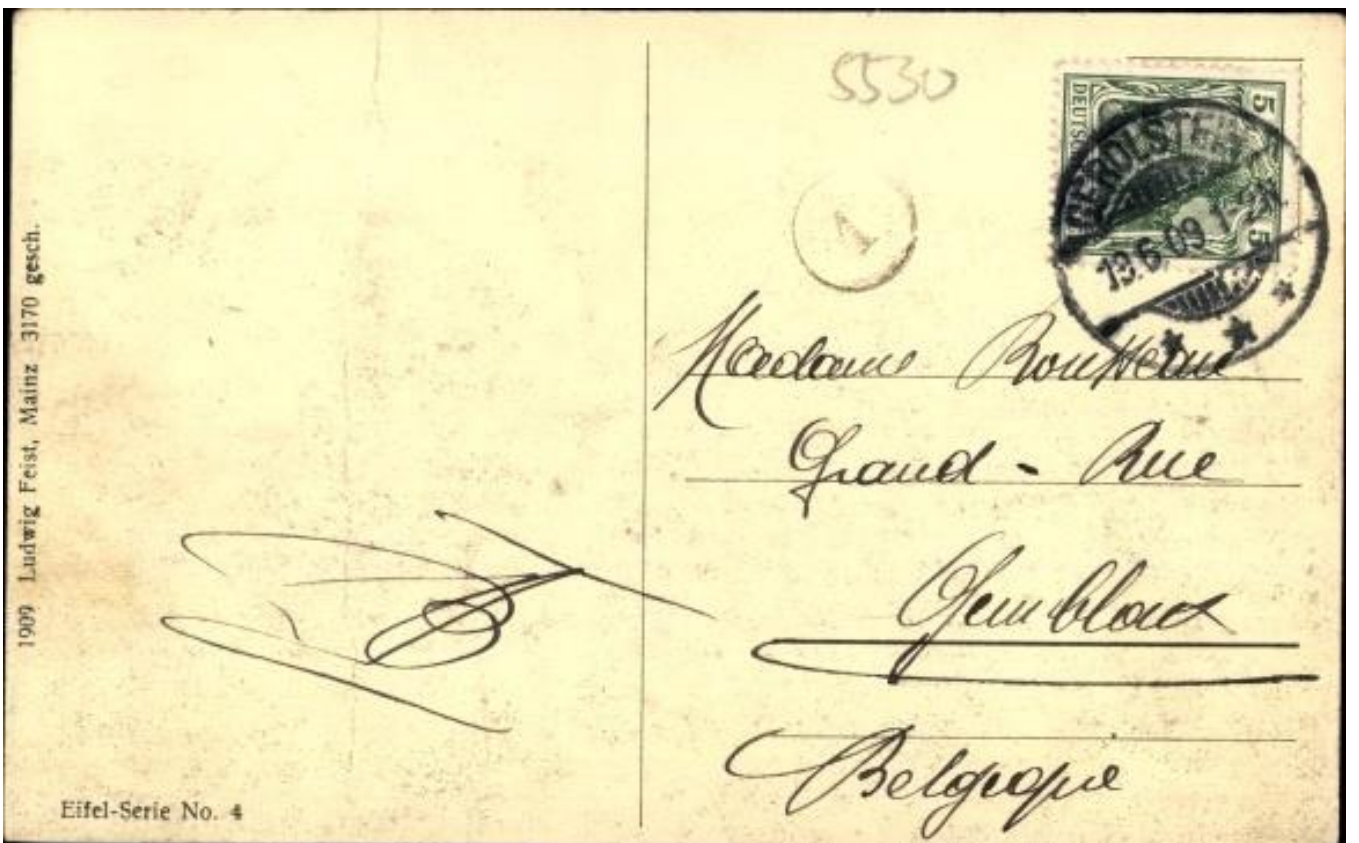 1909 Ludwig Feist, Mainz 3170 gesch.
Eifel-Serie No. 4
5530
5 5
DEUTSCH
GEROLSTEIN
19.6.09 1-2N.
1
Madame Rousseau
Grand-Rue
Gembloux
Belgique